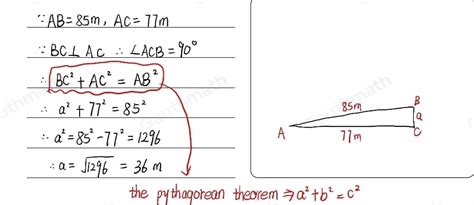 ∵ AB = 85m, AC = 77m
∵ BC ⊥ AC ∴ ∠ACB = 90°
∴ BC² + AC² = AB²
∴ a² + 77² = 85²
∴ a² = 85² - 77² = 1296
∴ a = √1296 = 36 m
85m
B
a
A
77m
C
the pythagorean theorem ⇒ a² + b² = c²